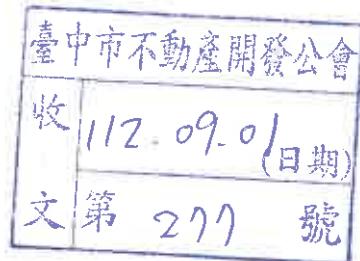 臺中市不動產開發公會
收文
112.09.01(日期)
第 277 號